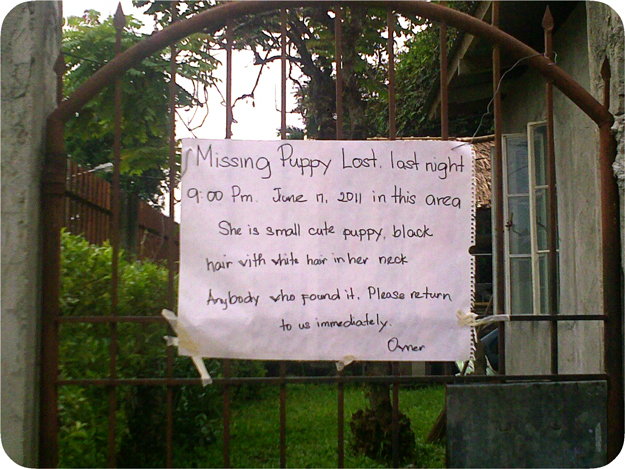 Missing Puppy Lost. last night
9:00 Pm. June 17, 2011 in this area
She is small cute puppy, black
hair with white hair in her neck
Anybody who found it. Please return
to us immediately.
Owner